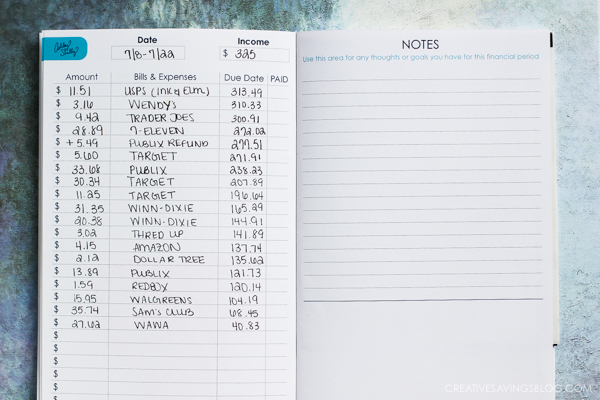 Date
Income
7/8-7/22
$ 325
Amount Bills & Expenses Due Date PAID
$ 11.51 USPS (ink & Elm) 313.49
$ 3.16 WENDY'S 310.33
$ 9.42 TRADER JOES 300.91
$ 28.89 7-ELEVEN 272.02
$ +5.49 PUBLIX REFUND 277.51
$ 5.60 TARGET 271.91
$ 33.68 PUBLIX 238.23
$ 30.34 TARGET 207.89
$ 11.25 TARGET 196.64
$ 31.35 WINN-DIXIE 165.29
$ 20.38 WINN-DIXIE 144.91
$ 3.02 THRED UP 141.89
$ 4.15 AMAZON 137.74
$ 2.12 DOLLAR TREE 135.62
$ 13.89 PUBLIX 121.73
$ 1.59 REDBOX 120.14
$ 15.95 WALGREENS 104.19
$ 35.74 SAM'S CLUB 68.45
$ 27.62 WAWA 40.83
$
$
$
$
$
NOTES
Use this area for any thoughts or goals you have for this financial period
CREATIVESAVINGSBLOG.COM